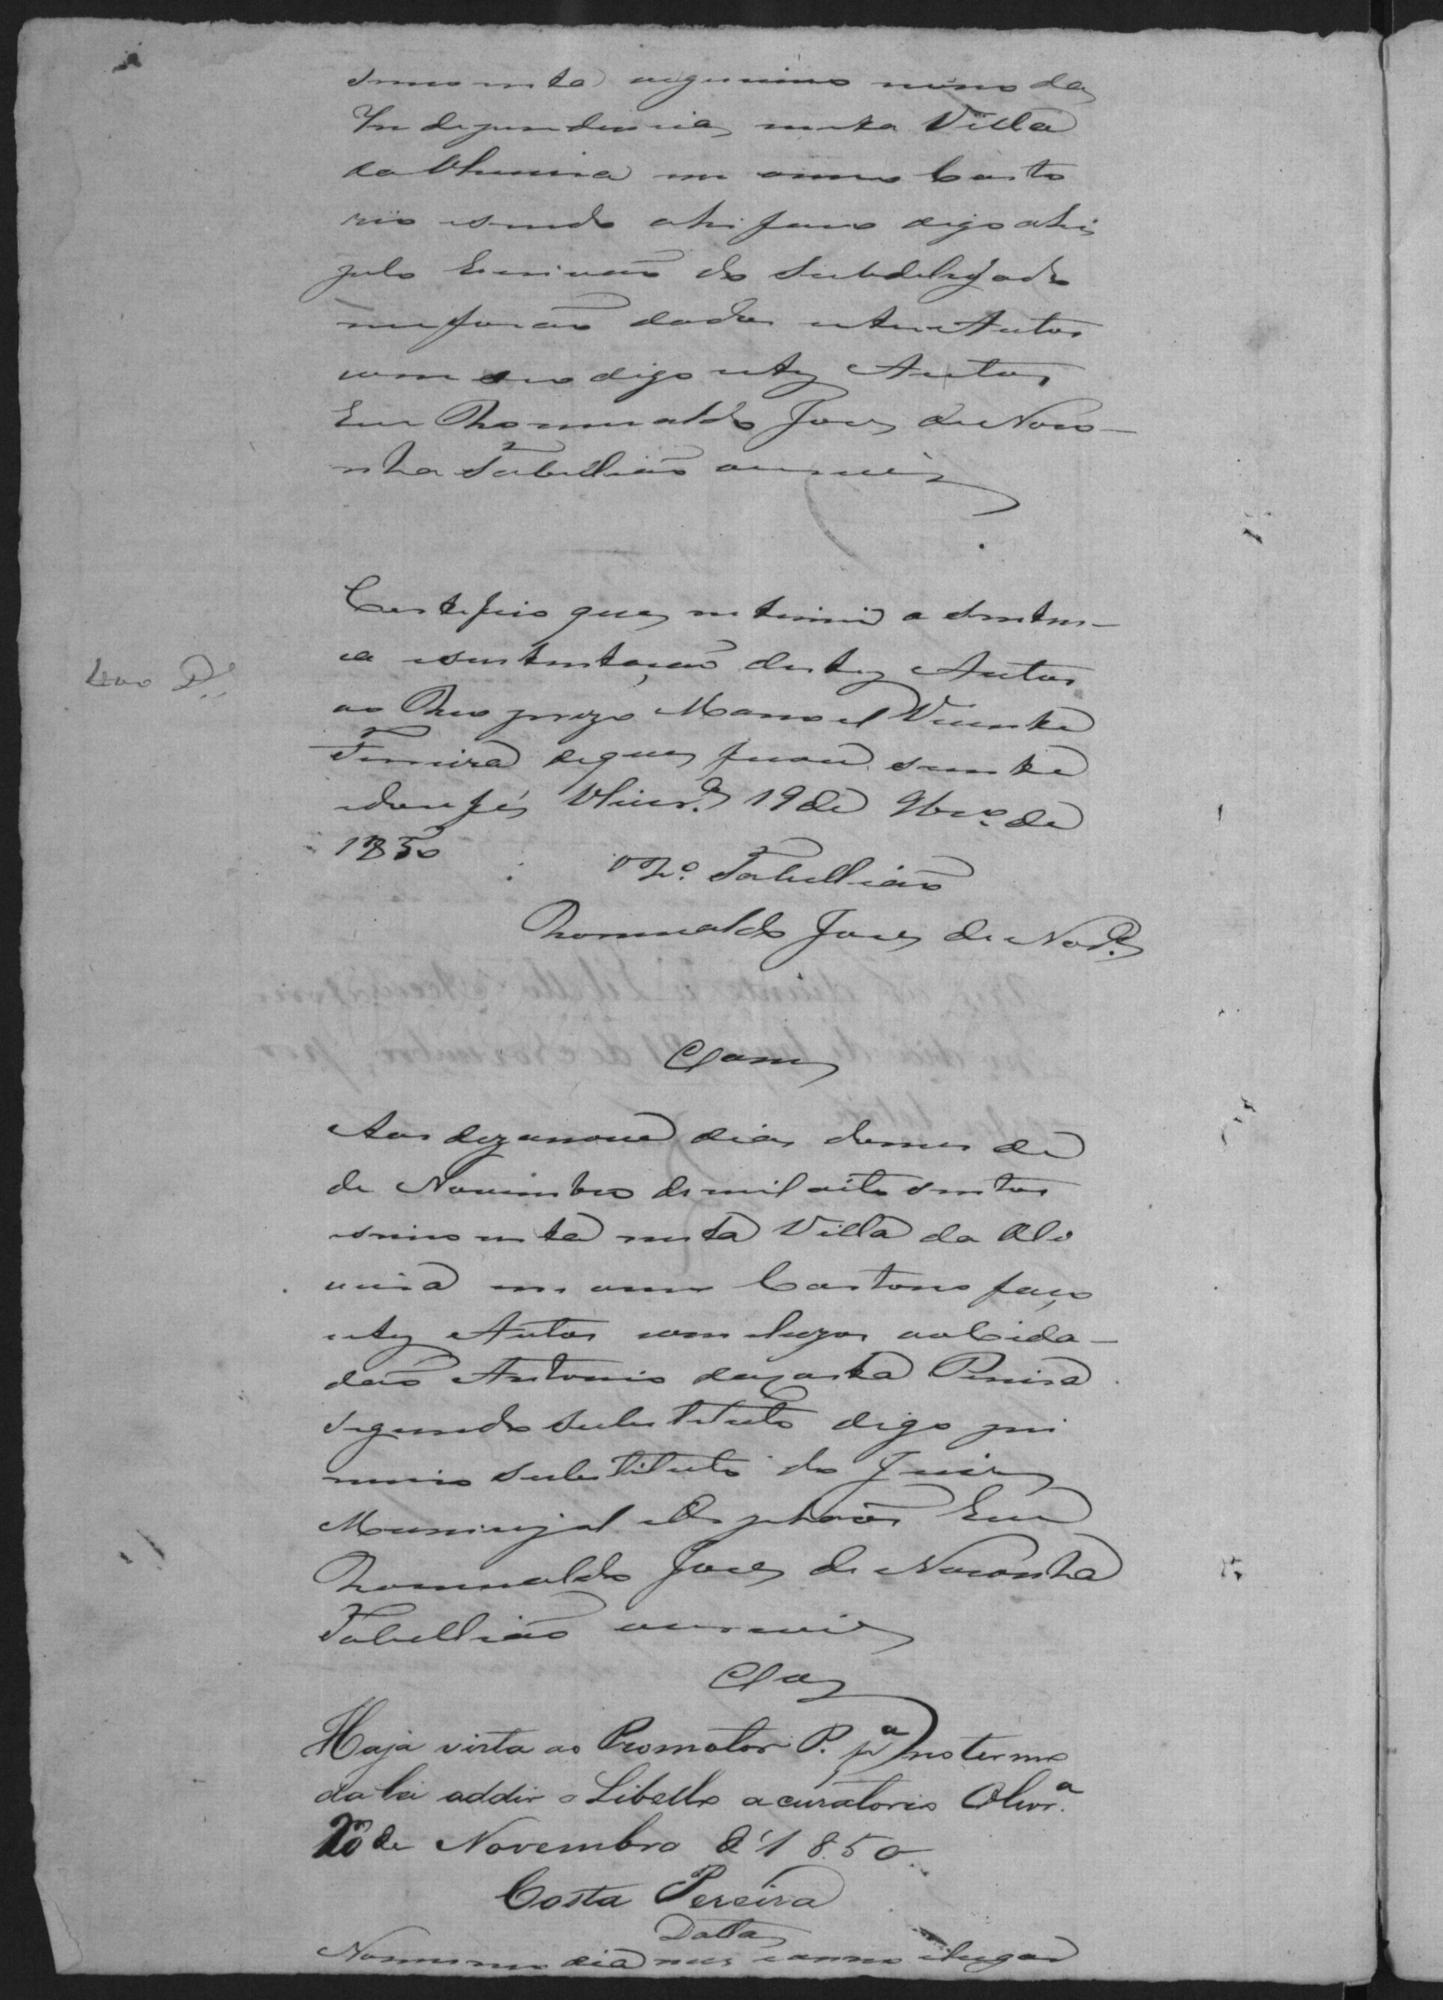 sincoenta vigessimo nono da
Independencia nesta Villa
da Oliveira em o meu Carto
rio sendo ahi faço digo ahi
pelo Escrivão do Subdelegado
me forão dados estes Autos
com digo estes Autos
Eu Romualdo Jose de Noro-
nha Tabellião escrevi

Certefico que intimei a senten-
ca esustentação destes Autos
ao Reo prezo Manoel Vicente
Ferreira de que ficou sciente
edou fé Oliveira 19 de 9bro de
1850
O 2º Tabellião
Romualdo Jose de Norª
Clams
Aos dezanove dias domes de
de Novembro demil oito sentos
esincoenta nesta Villa da Oli
veira em omeu Cartorio faço
estes Autos comclusos aoCida-
dão Antonio daCosta Pereira
segundo substituto digo pri
meiro substituto do Juiz
Municipal eOrphaons Eu
Romualdo Jose de Noronha
Tabellião escrevi
Clos
Haja vista ao Promotor P. pª nos termos
da lei addir o Libello acuratorio Olivrª
20 de Novembro d'1850.
Costa Pereira
Datta
Nomesmo dia mes eanno elugar